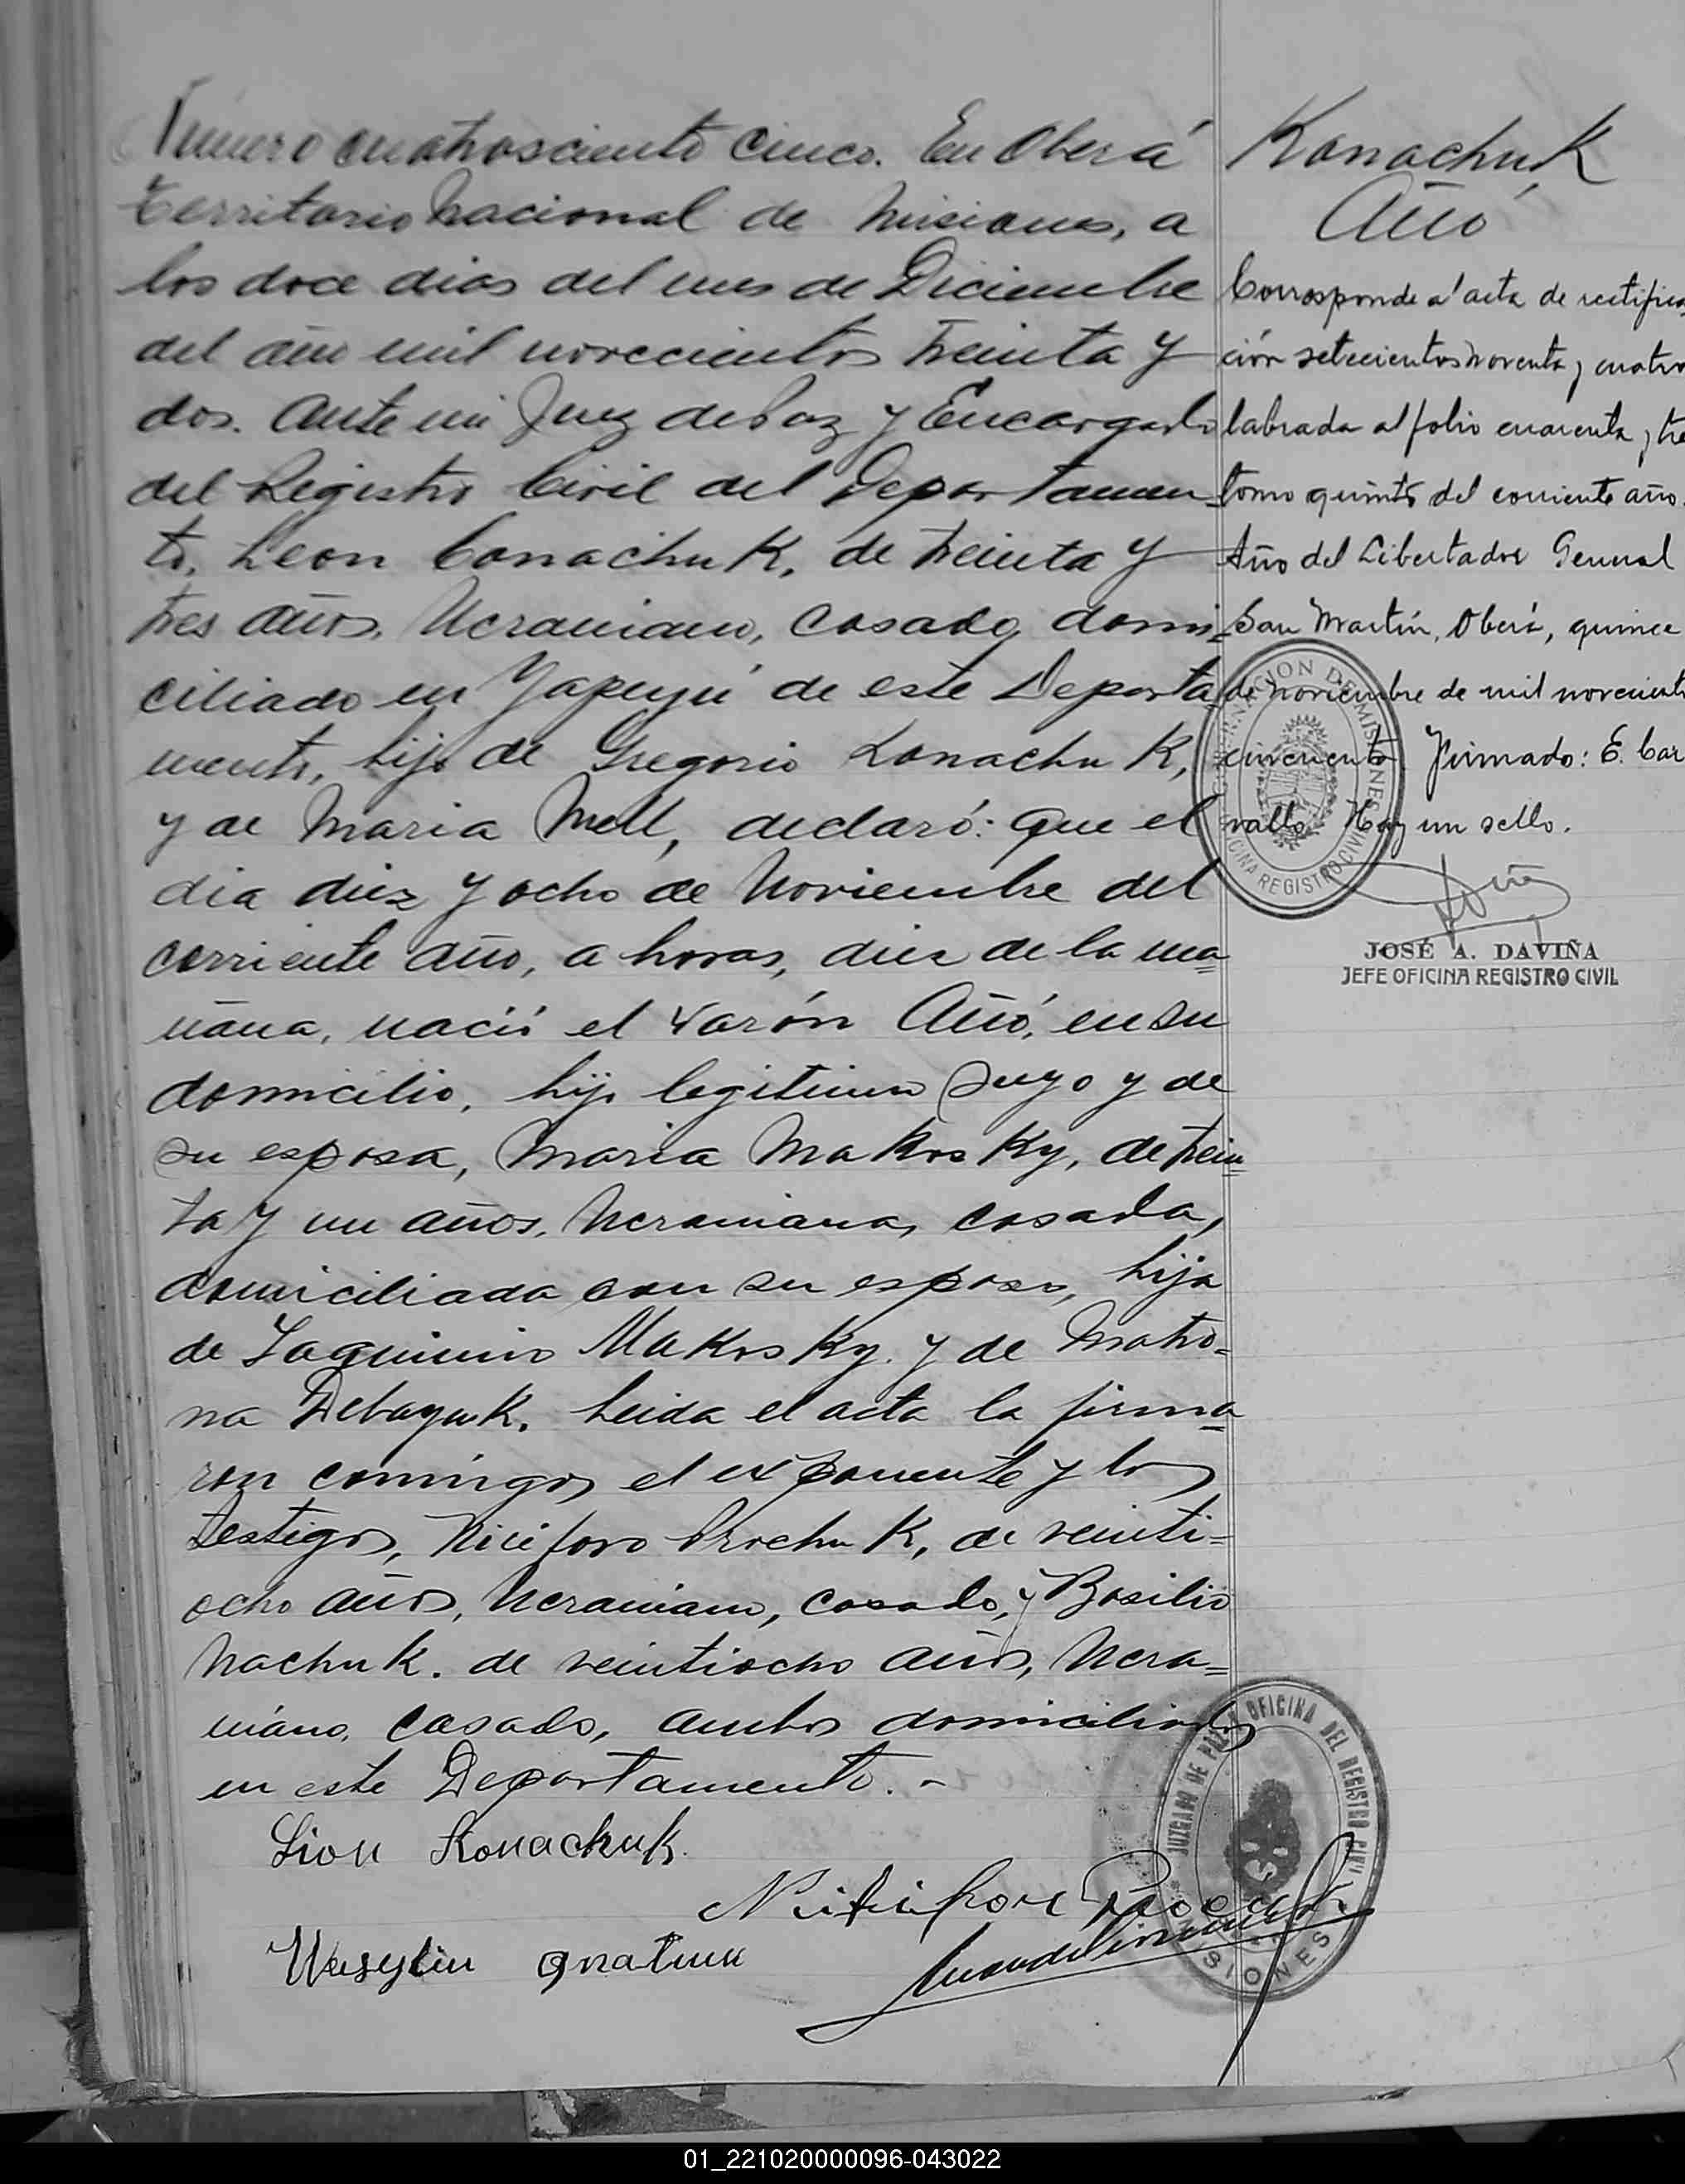 Número cuatrosciento cinco. En Oberá
territorio Nacional de Misiones, a
los doce dias del mes de Diciembre
del año mil novecientos treinta y
dos. Ante mi Juez de Paz y Encargado
del Registro Civil del Departamen-
to, Leon Conachuk, de treinta y
tres años, Ucraniano, casado, domi-
ciliado en Yapeyú de este Departa-
mento, hijo de Gregorio Konachuk,
y de Maria Mell, declaró: Que el
dia diez y ocho de Noviembre del
corriente año, a horas, diez de la ma-
ñana, nació el varón Añó, en su
domicilio, hijo legitimo suyo y de
su esposa, Maria Makosky, de trein-
ta y un años, Ucraniana, casada,
domiciliada con su esposo, hija
de Jaquimin Makosky. y de Matro-
na Debayuk. Leida el acta la firma-
ron conmigo, el exponente y los
testigos, Niciforo Prochuk, de veinti-
ocho años, Ucraniano, casado, y Basilio
Nachuk. de veintiocho años, Ucra-
niano, casado, ambos domiciliados
en este Departamento.-
Lion Konachuk.
Wasylin Gnatiuk
Konachuk
Añó
Corresponde a' acta de rectifica
ción setecientos noventa y cuatro
labrada al folio cuarenta y tre
tomo quinto del corriente año.
Año del Libertador General
San Martín, Oberá, quince
de noviembre de mil novecient
cincuenta. Firmado: E. Car
vallo. Hay un sello.
GOBERNACION DE MISIONES
OFICINA REGISTRO CIVIL
JOSÉ A. DAVIÑA
JEFE OFICINA REGISTRO CIVIL
JUZGADO DE PAZ Y OFICINA DEL REGISTRO CIVIL
MISIONES
01_221020000096-043022